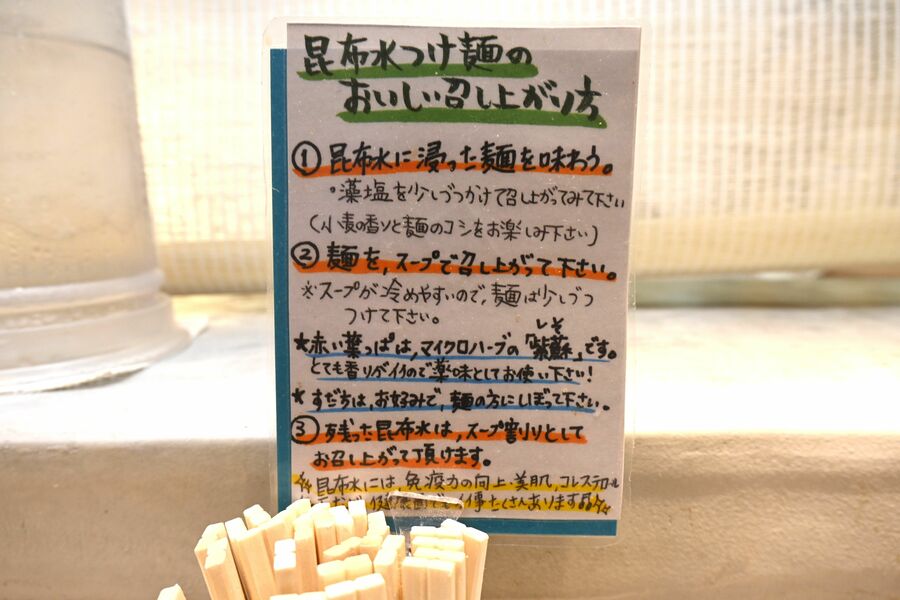 昆布水つけ麺の
おいしい召し上がり方
① 昆布水に浸った麺を味わう。
・藻塩を少しづつかけて召し上がってみて下さい
(小麦の香りと麺のコシをお楽しみ下さい)
② 麺を、スープで召し上がって下さい。
※スープが冷めやすいので、麺は少しづつ
つけて下さい。
しそ
★赤い葉っぱは、マイクロハーブの「紫蘇」です。
とても香りがイイので薬味としてお使い下さい!
★すだちは、お好みで、麺の方にしぼって下さい。
③ 残った昆布水は、スープ割りとして
お召し上がって頂けます。
昆布水には、免疫力の向上、美肌、コレステロール
健康面でも
たくさんあります